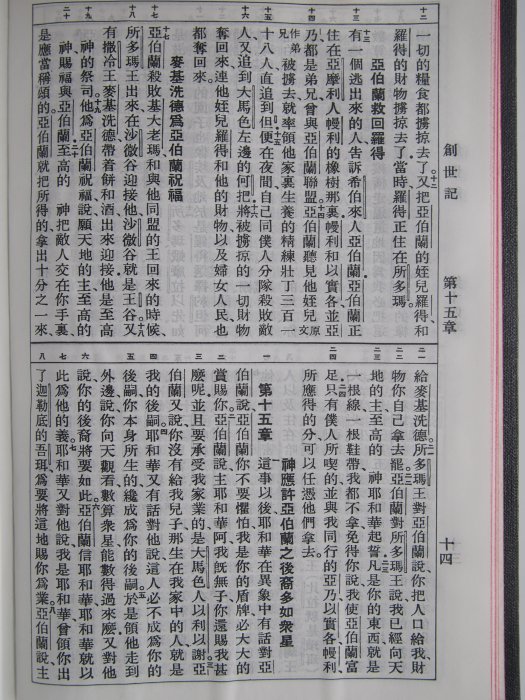 創世記 第十五章 十四
一切的糧食都擄掠去了又把亞伯蘭的姪兒羅得和
羅得的財物擄掠去了當時羅得正住在所多瑪
亞伯蘭救回羅得
有一個逃出來的人告訴希伯來人亞伯蘭亞伯蘭正
住在亞摩利人幔利的橡樹那裏幔利和以實各並亞
乃都是弟兄曾與亞伯蘭聯盟亞伯蘭聽見他姪兒原文
作弟兄被擄去就率領他家裏生養的精練壯丁三百一
十八人直追到但便在夜間自己同僕人分隊殺敗敵
人又追到大馬色左邊的何把將被擄掠的一切財物
奪回來連他姪兒羅得和他的財物以及婦女人民也
都奪回來
麥基洗德爲亞伯蘭祝福
亞伯蘭殺敗基大老瑪和與他同盟的王回來的時候
所多瑪王出來在沙微谷迎接他沙微谷就是王谷又
有撒冷王麥基洗德帶着餅和酒出來迎接他是至高
神的祭司他爲亞伯蘭祝福說願天地的主至高的
神賜福與亞伯蘭至高的 神把敵人交在你手裏
是應當稱頌的亞伯蘭就把所得的拿出十分之一來
給麥基洗德所多瑪王對亞伯蘭說你把人口給我財
物你自己拿去罷亞伯蘭對所多瑪王說我已經向天
地的主至高的 神耶和華起誓凡是你的東西就是
一根線一根鞋帶我都不拿免得你說我使亞伯蘭富
足只有僕人所喫的並與我同行的亞乃以實各幔利
所應得的分可以任憑他們拿去
神應許亞伯蘭之後裔多如衆星
第十五章 這事以後耶和華在異象中有話對亞
伯蘭說亞伯蘭你不要懼怕我是你的盾牌必大大的
賞賜你亞伯蘭說主耶和華阿我旣無子你還賜我甚
麼呢並且要承受我家業的是大馬色人以利以謝亞
伯蘭又說你沒有給我兒子那生在我家中的人就是
我的後嗣耶和華又有話對他說這人必不成爲你的
後嗣你本身所生的纔成爲你的後嗣於是領他走到
外邊說你向天觀看數算衆星能數得過來麼又對他
說你的後裔將要如此亞伯蘭信耶和華耶和華就以
此爲他的義耶和華又對他說我是耶和華曾領你出
了迦勒底的吾珥爲要將這地賜你爲業亞伯蘭說主